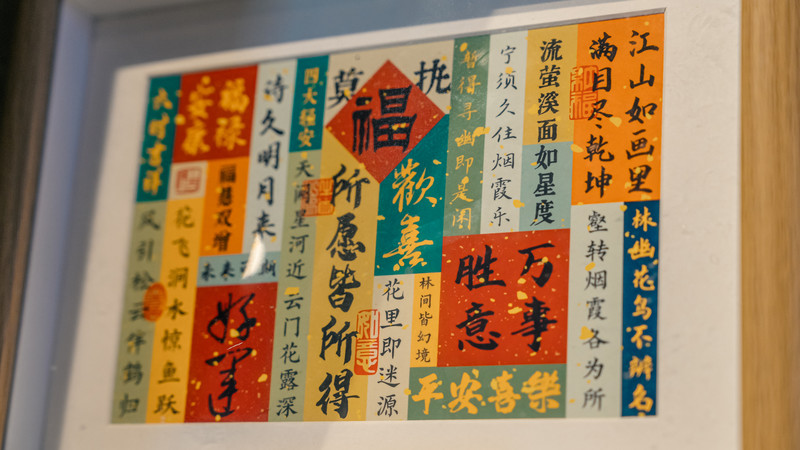 江山如画里
满目尽乾坤
林幽花鸟不辨名
壑转烟霞各为所
流萤溪面如星度
宁须久住烟霞乐
暂得寻幽即是闲
万事
胜意
平安喜樂
莫
福
歡喜
林间皆幻境
花里即迷源
所愿皆所得
如意
四大骚安
天阔星河近
云门花露深
诗久明月来
福禄
安康
福慧双增
未来可期
好運
六时吉祥
花飞涧水惊鱼跃
风引松云伴鹤归